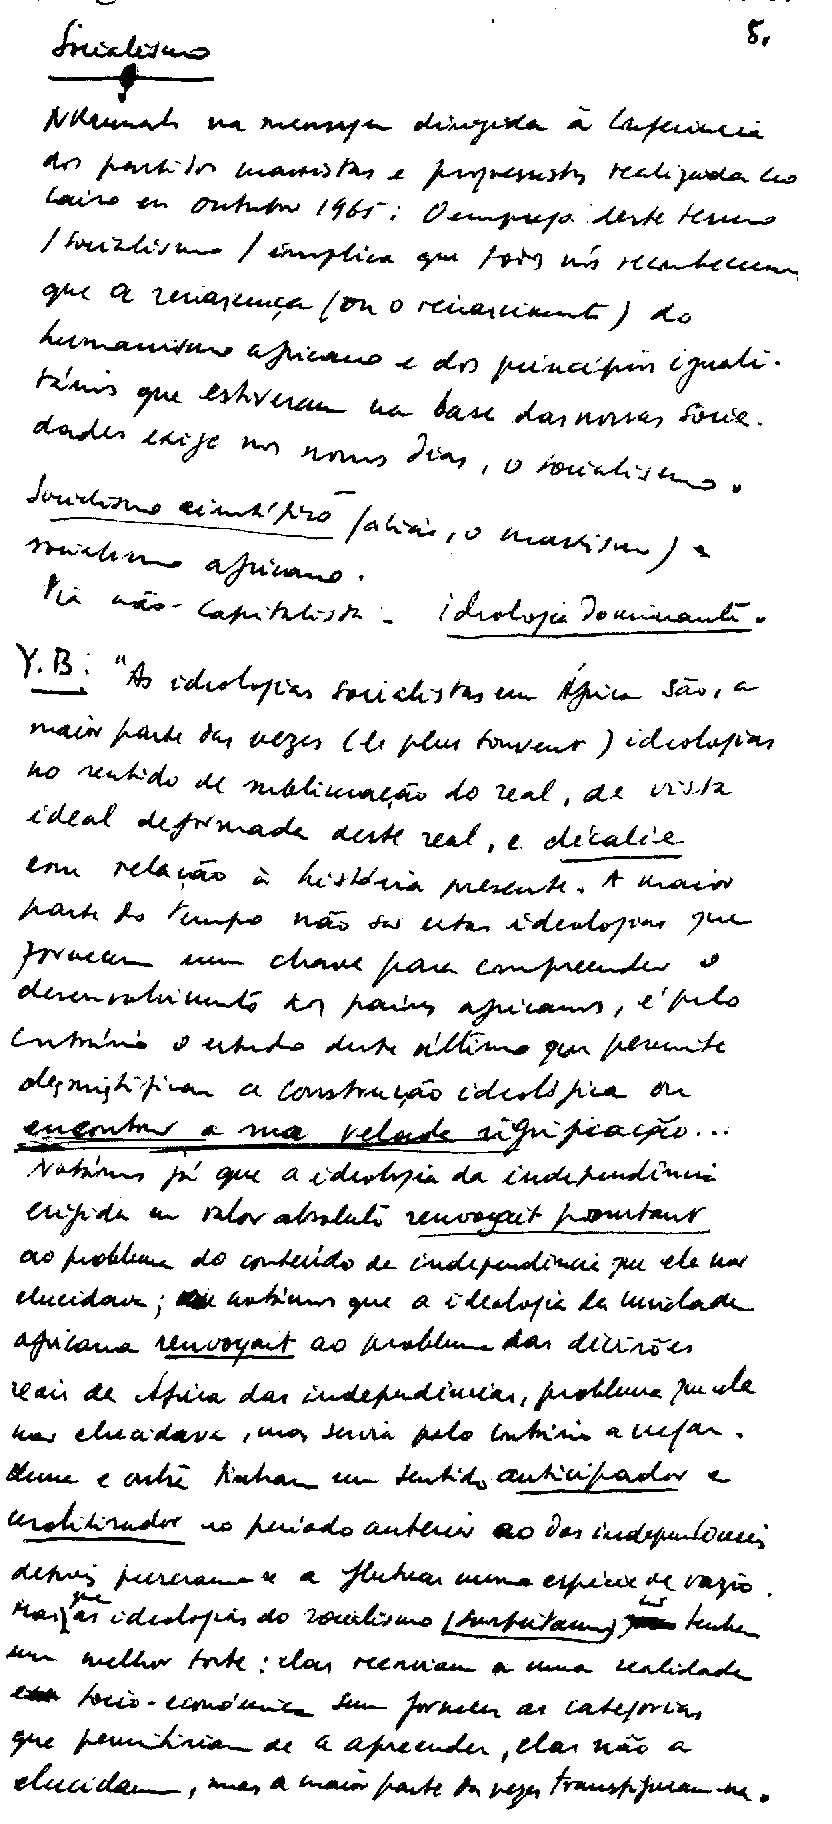 8.
Socialismo
NKrumah na mensagem dirigida à Conferência
dos partidos marxistas e progressistas realizada no
Cairo em outubro 1965: O emprego deste termo
/socialismo/ implica que todos nós reconhecemos
que a renascença (ou o renascimento) do
humanismo africano e dos princípios iguali-
tários que estiveram na base das nossas socie-
dades exige nos nossos dias, o socialismo.
Socialismo científico (aliás, o marxismo) e
socialismo africano.
Via não-capitalista - ideologia dominante.
Y.B: "As ideologias socialistas em África são, a
maior parte das vezes (le plus souvent) ideologias
no sentido de sublimação do real, de vista
ideal deformada deste real, e décalée
com relação à história presente. A maior
parte do tempo não são estas ideologias que
fornecem uma chave para compreender o
desenvolvimento dos países africanos, é pelo
contrário o estudo deste último que permite
desmistificar a construção ideológica ou
encontrar a sua velada significação...
Notámos já que a ideologia da independência
erigida em valor absoluto renvoyait pourtant
ao problema do conteúdo de independência que ela não
elucidava; notámos que a ideologia da unidade
africana renvoyait ao problema das divisões
reais de África das independências, problema que ela
não elucidava, mas servia pelo contrário a negar.
Uma e outra tinham um sentido anticipador e
mobilizador no período anterior ao das independências
depois puseram-se a flutuar numa espécie de vazio.
Mas que as ideologias do socialismo (surtout) não tenham
um melhor sorte: elas reenviam a uma realidade
socio-económica sem fornecer as categorias
que permitiriam de a apreender, elas não a
elucidam, mas a maior parte das vezes transfiguram-na.